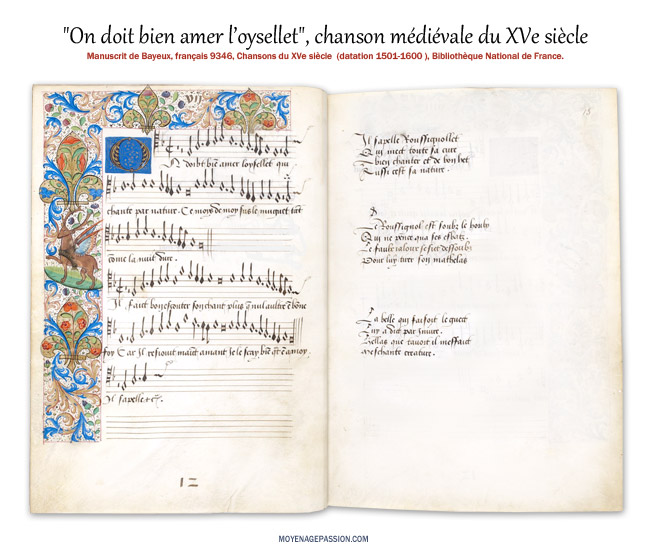 "On doit bien amer l'oysellet", chanson médiévale du XVe siècle
Manuscrit de Bayeux, français 9346, Chansons du XVe siècle (datation 1501-1600 ), Bibliothèque National de France.
N doibt bien amer loysellet qui
chante par nature. Ce moys de moy sus le muguet tāt
cōme la nuit dure.
Il fait bon escouter son chant plus q̄ nul aultre ē bōne
foy Car il resiouit maīt amant Je le scay biē q̄t ē a moy.
Il sapelle etc.
12
13
Il sapelle Roussignollet
Qui mect toute sa cure
A bien chanter et de bon het
Aussi cest sa nature.
Le Roussignol est soubz le houly
Qui ne pence qua ses esbatz
Le faulx ialoux se siet dessoubz
Pour luy tirer son mathelas
La belle qui faisoit le guect
Luy a dit par iniure
Hellas que tavoit il meffaict
Meschante creature.
MOYENAGEPASSION.COM